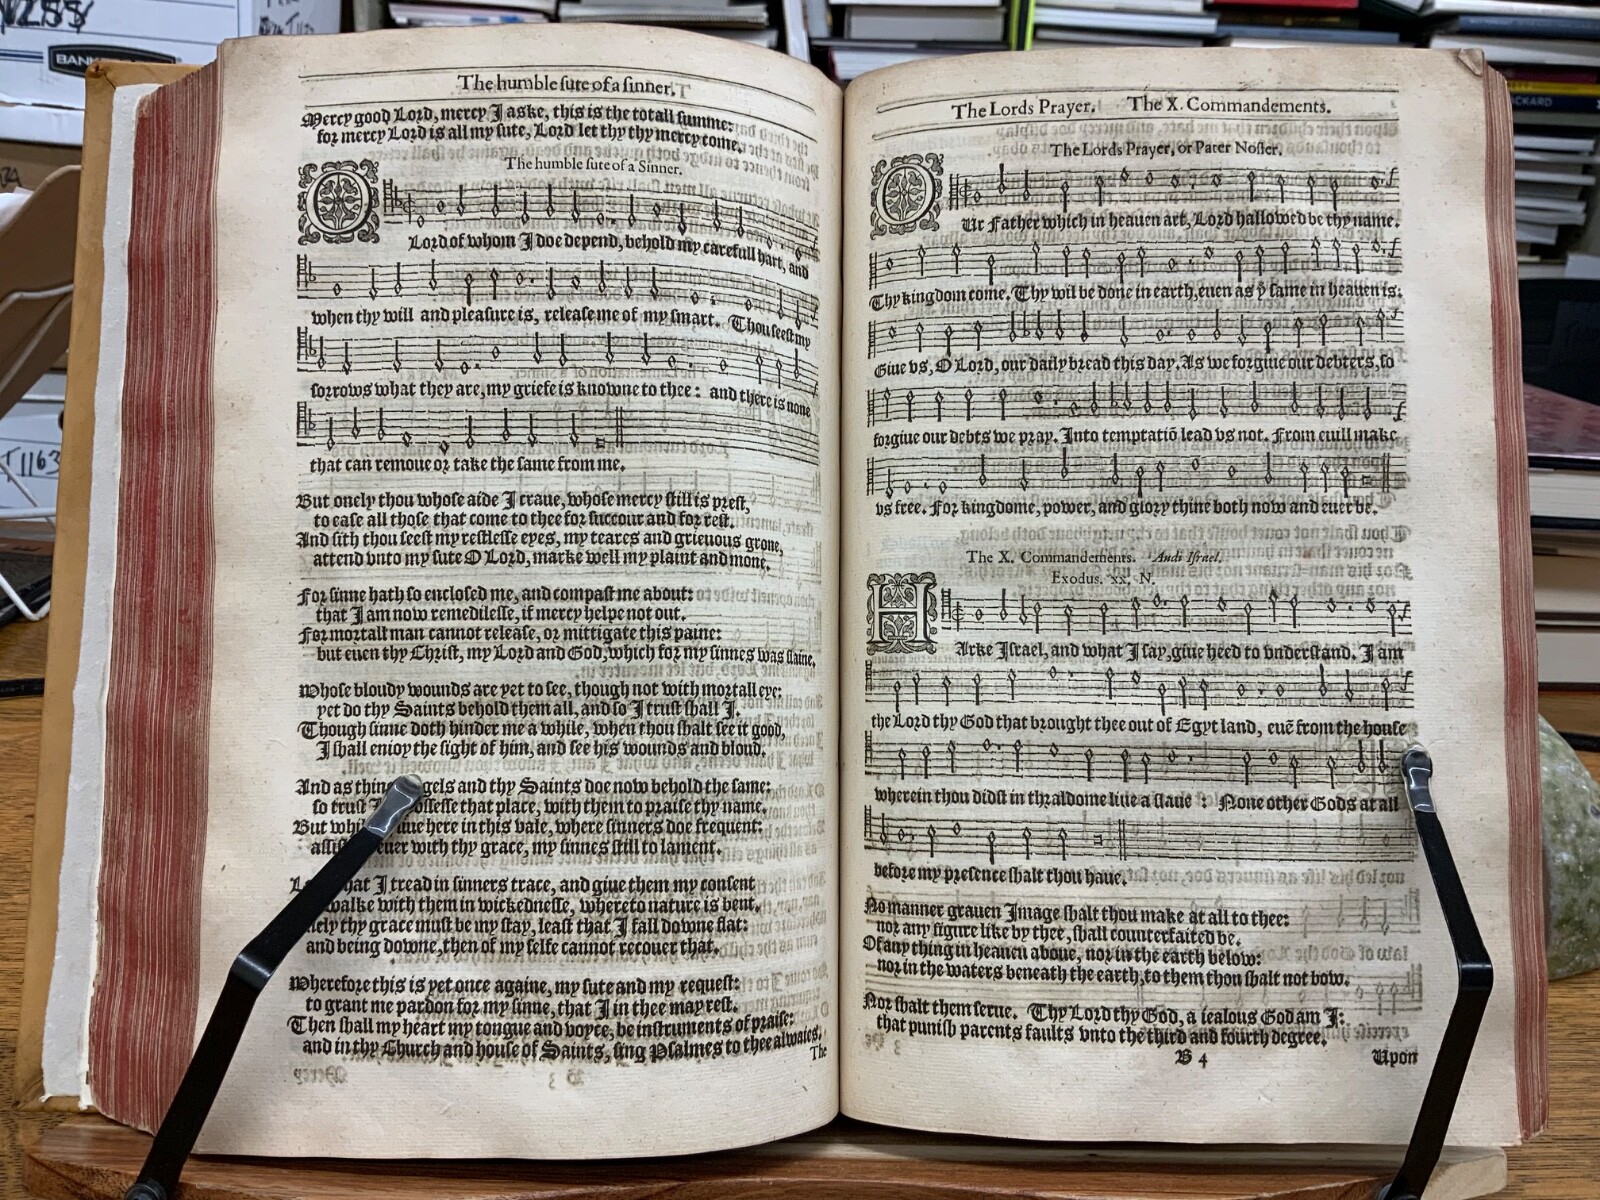 The humble sute of a sinner.
Mercy good Lord, mercy I aske, this is the totall summe:
for mercy Lord is all my sute, Lord let thy thy mercy come.
The humble sute of a Sinner.
O Lord of whom I doe depend, behold my carefull hart, and
when thy will and pleasure is, release me of my smart. Thou seest my
sorrows what they are, my griefe is knowne to thee: and there is none
that can remoue or take the same from me.
But onely thou whose aide I craue, whose mercy still is prest,
to ease all those that come to thee for succour and for rest.
And sith thou seest my restlesse eyes, my teares and grieuous grone,
attend vnto my sute O Lord, marke well my plaint and mone.
For sinne hath so enclosed me, and compast me about:
that I am now remedilesse, if mercy helpe not out.
For mortall man cannot release, or mittigate this paine:
but euen thy Christ, my Lord and God, which for my sinnes was slaine.
Whose bloudy wounds are yet to see, though not with mortall eye:
yet do thy Saints behold them all, and so I trust shall I.
Though sinne doth hinder me a while, when thou shalt see it good,
I shall enioy the sight of him, and see his wounds and bloud.
And as thine gels and thy Saints doe now behold the same:
so trust I ossesse that place, with them to praise thy name,
But whi iue here in this vale, where sinners doe frequent:
assist euer with thy grace, my sinnes still to lament.
hat I tread in sinners trace, and giue them my consent
walke with them in wickednesse, whereto nature is bent,
ely thy grace must be my stay, least that I fall downe flat:
and being downe, then of my selfe cannot recouer that.
Wherefore this is yet once againe, my sute and my request:
to grant me pardon for my sinne, that I in thee may rest.
Then shall my heart my tongue and voyce, be instruments of praise:
and in thy Church and house of Saints, sing Psalmes to thee alwaies.
The
The Lords Prayer. The X. Commandements.
The Lords Prayer, or Pater Noster.
OUr Father which in heauen art, Lord hallowed be thy name.
Thy kingdom come. Thy wil be done in earth, euen as ẏ same in heauen is:
Giue vs, O Lord, our daily bread this day. As we forgiue our debters, so
forgiue our debts we pray. Into temptatiō lead vs not. From euill make
vs free. For kingdome, power, and glory thine both now and euer be.
The X. Commandements. Audi Israel.
Exodus. xx. N.
HArke Israel, and what I say, giue heed to vnderstand. I am
the Lord thy God that brought thee out of Egypt land, euē from the house
wherein thou didst in thraldome liue a slaue : None other Gods at all
before my presence shalt thou haue.
No manner grauen Image shalt thou make at all to thee:
nor any figure like by thee, shall counterfaited be.
Of any thing in heauen aboue, nor in the earth below:
nor in the waters beneath the earth, to them thou shalt not bow.
Nor shalt them serue. Thy Lord thy God, a iealous God am I:
that punish parents faults vnto the third and fourth degree.
B 4 Upon
BANK
T1163
CKARD